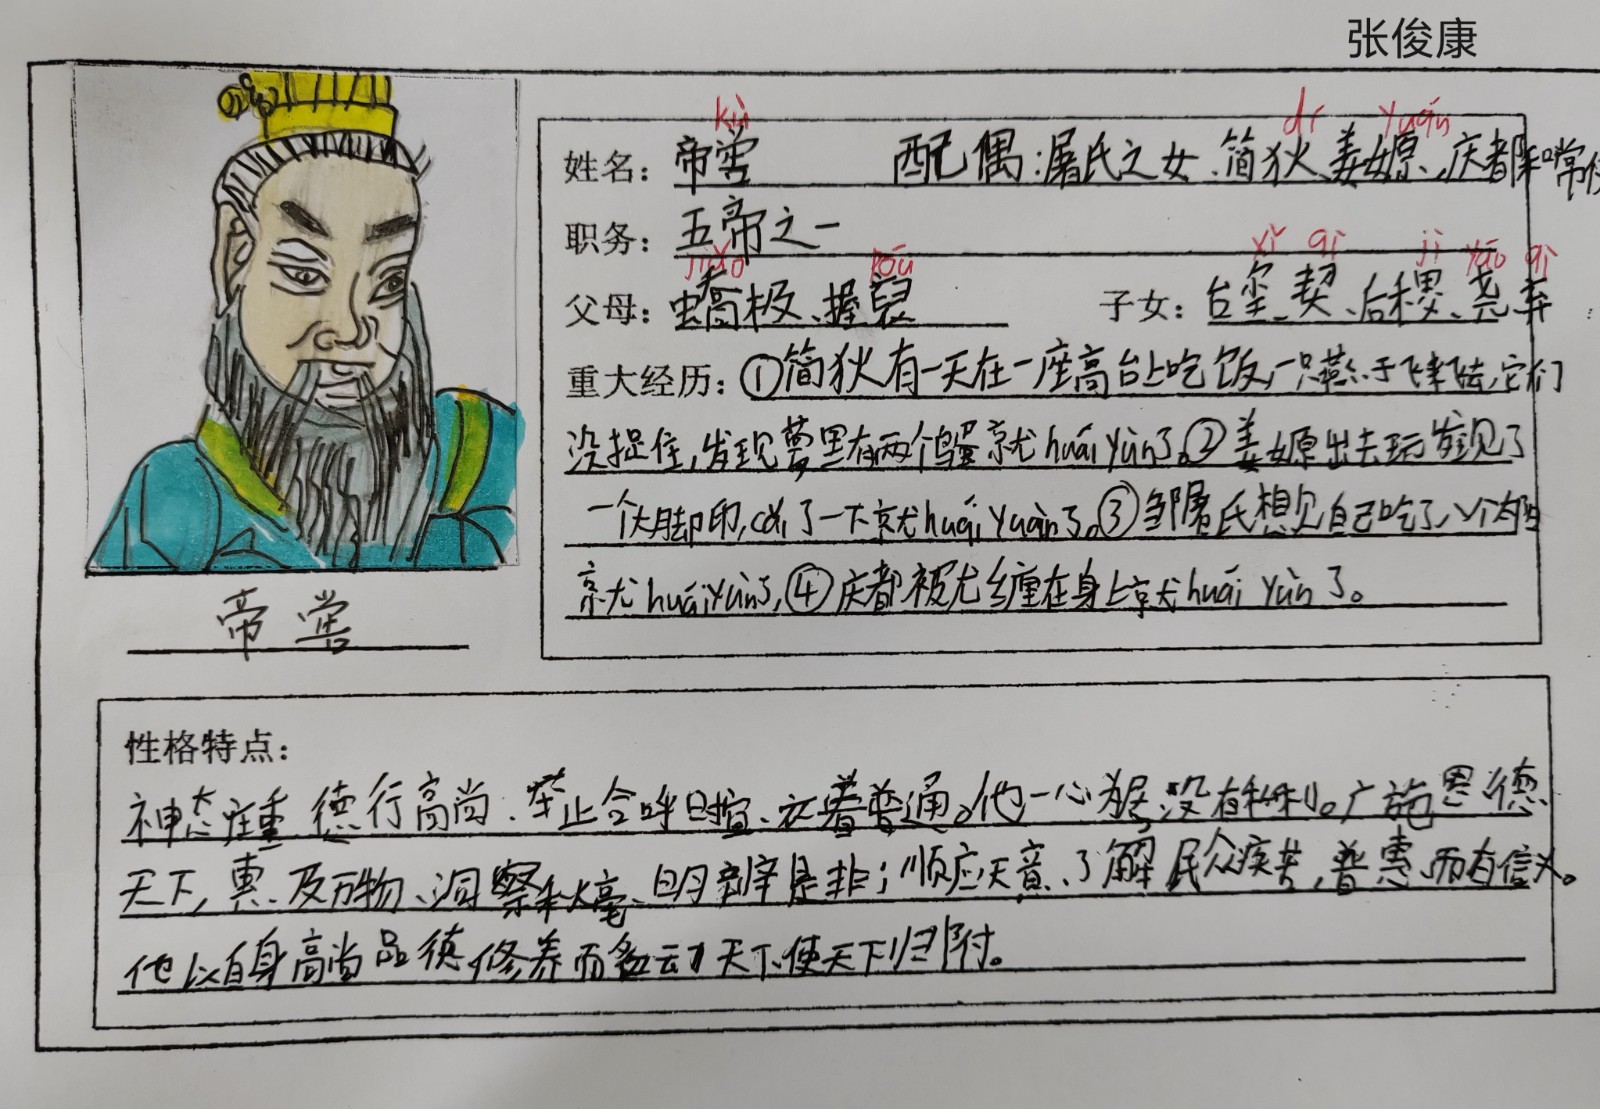 张俊康
kù dí yuán
姓名：帝喾 配偶：屠氏之女、简狄、姜嫄、庆都陬
职务：五帝之一
jiǎo póu xǐ qì jì yáo qì
父母：蟜高极、握裒 子女：台玺、契、后稷、尧、弃
重大经历：①简狄有一天在一座高台上吃饭，一只燕子飞来飞去，它们
没捉住，发现 里有两个鸟蛋就huái yùn了。②姜嫄出去玩发现了
一个大脚印，cǎi了一下就huái yuàn了。③邹屠氏想见自己吃了八个
就huái yùn了，④庆都被尤缠在身上就huái yùn了。
帝喾
性格特点：
神态 重 德行高尚、举止合乎 宜、衣着普通。他一心 没有私利。广施恩德
天下，惠及万物、洞察秋毫、明辨是非；顺应天意、了解民众疾苦，普惠而有信义。
他以自身高尚品德修养而 动天下使天下归附。